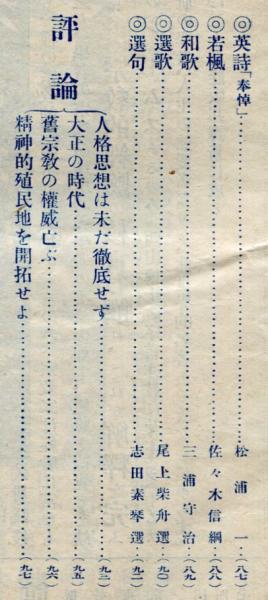 ◎英詩「奉悼」…………松浦一…(八七)
◎若楓…………佐々木信綱…(八八)
◎和歌…………三浦守治…(八九)
◎選歌…………尾上柴舟選…(九〇)
◎選句…………志田素琴選…(九一)
評論
人格思想は未だ徹底せず…………(九三)
大正の時代…………(九五)
舊宗敎の權威亡ぶ…………(九六)
精神的殖民地を開拓せよ…………(九七)